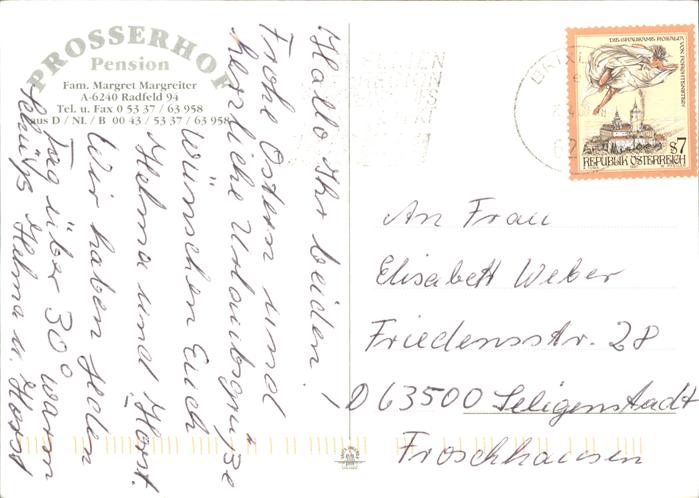 PROSSERHOF
Pension
Fam. Margret Margreiter
A-6240 Radfeld 94
Tel. u. Fax 0 53 37 / 63 958
aus D / NL / B 00 43 / 53 37 / 63 958
Hallo Ihr beiden!
Frohe Ostern und
herzliche Urlaubsgrüße
Wünschen Euch
Helma und Horst.
Wir haben jeden
Tag über 30° warm
Tschüß Helma u. Horst
DIE GRAUSAME ROSALIA
VON FORCHTENSTEIN
S7
REPUBLIK ÖSTERREICH
BRIXL
An Frau
Elisabeth Weber
Friedensstr. 28
D 63500 Seligenstadt
Froschhausen